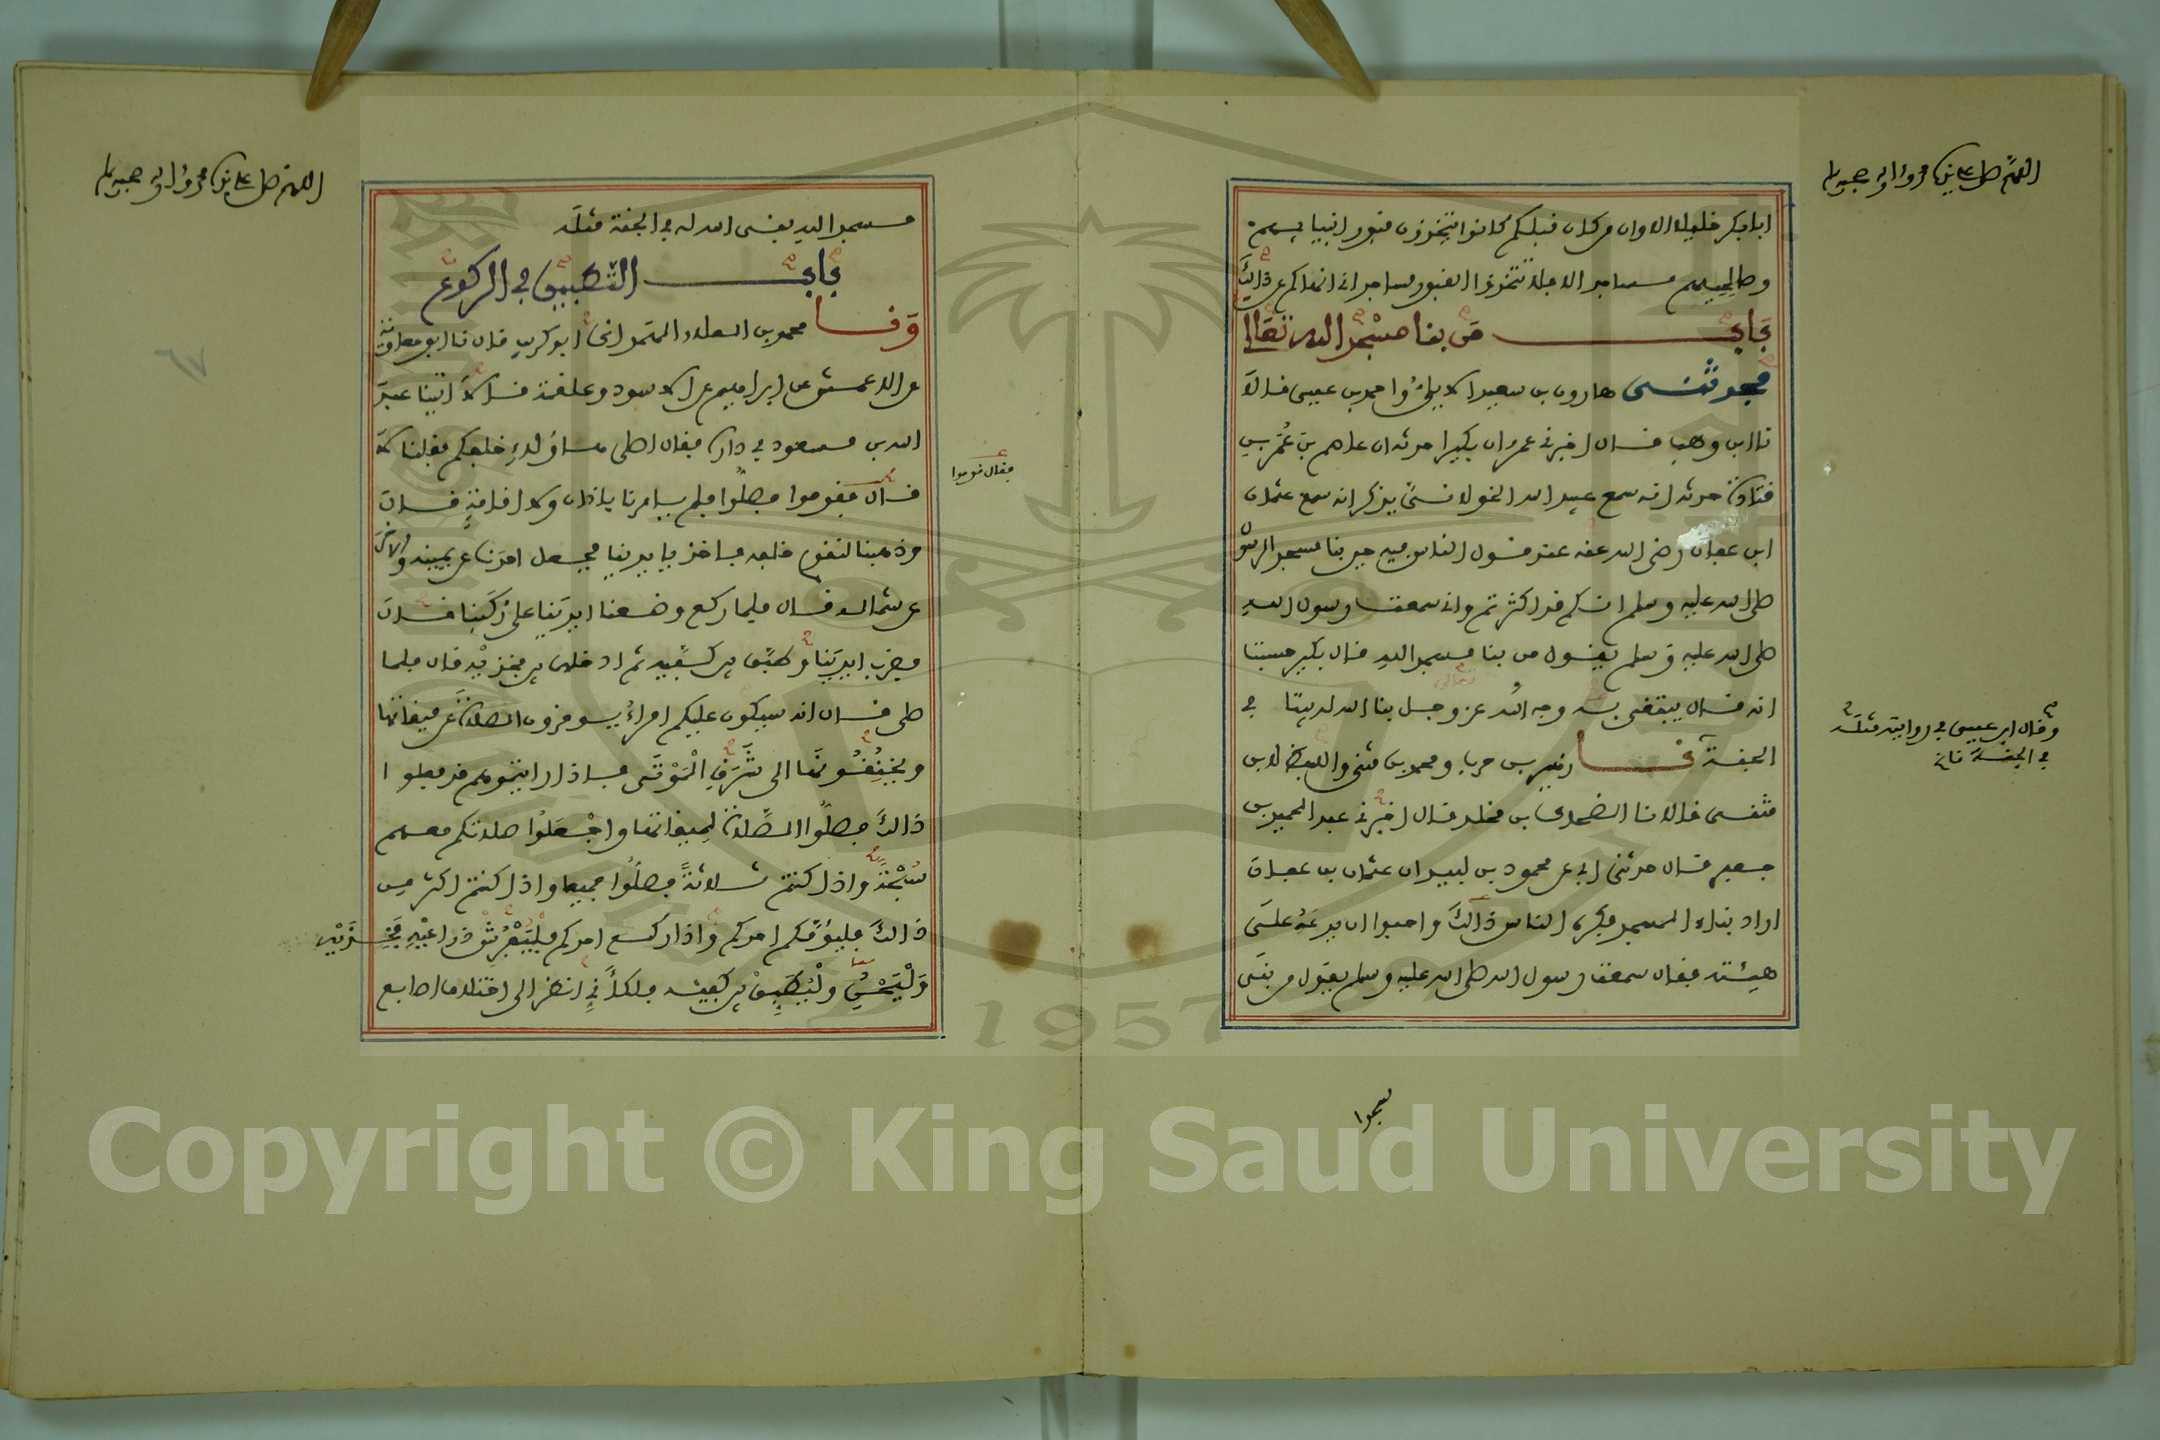 اللهم صل على سيدنا محمد وءاله وصحبه وسلم
ابا بكر خليلا الا وان من كان قبلكم كانوا يتخذون قبور انبيايهم
وصالحيهم مساجد الا فلا تتخذوا القبور مساجد انى انهاكم عن ذالك
باب من بنا مسجدا لله تعالى
حدثنى هارون بن سعيد الايلى واحمد بن عيسى قالا
نا ابن وهب قال اخبرنى عمرو ان بكيرا حدثه ان عاصم بن عمر بن
قتادة حدثه انه سمع عبيد الله الخولانى يذكر انه سمع عثمان
ابن عفان رضى الله عنه عند قول الناس فيه حين بنا مسجد الرسول
صلى الله عليه وسلم انكم قد اكثرتم وانى سمعت رسول الله
صلى الله عليه وسلم يقول من بنا مسجدا لله قال بكير حسبت
انه قال يبتغى به وجه الله عز وجل بنا الله له بيتا في
تعالى
الجنة نا زهير بن حرب ومحمد بن مثنى واللفظ لابن
وقال ابن عيسى في روايته مثله
في الجنة
مثنى قالا نا الضحاك بن مخلد قال اخبرنى عبد الحميد بن
جعفر قال حدثنى ابى عن محمود بن لبيد ان عثمان بن عفان
اراد بناء المسجد فكره الناس ذالك واحبوا ان يدعه على
هيئته فقال سمعت رسول الله صلى الله عليه وسلم يقول من بنى
مسجدا
اللهم صل على سيدنا محمد وءاله وصحبه وسلم
مسجدا لله بنى الله له في الجنة مثله
باب التطبيق في الركوع
ونا محمد بن العلاء الهمدانى ابو كريب قال نا ابو معاوية
عن الاعمش عن ابراهيم عن الاسود وعلقمة قالا اتينا عبد
الله بن مسعود في داره فقال اصلى هاؤلاء خلفكم فقلنا لا
فقال قوموا
قال فقوموا فصلوا فلم يامرنا باذان ولا اقامة قال
وذهبنا لنقوم خلفه فاخذ بايدينا فجعل احدنا عن يمينه والاخر
عن شماله قال فلما ركع وضعنا ايدينا على ركبنا قال
فضرب ايدينا وطبق بين كفيه ثم ادخلهما بين فخذيه قال فلما
صلى قال انه سيكون عليكم امراء يوخرون الصلاة عن ميقاتها
ويخنقونها الى شرق الموتى فاذا رايتموهم قد فعلوا
ذالك فصلوا الصلاة لميقاتها واجعلوا صلاتكم معهم
سبحة واذا كنتم ثلاثة فصلوا جميعا واذا كنتم اكثر من
ذالك فليؤمكم احدكم واذا ركع احدكم فليفرش ذراعيه فخذيه
وليحن وليطبق بين كفيه فلكأنى انظر الى اختلاف اصابع